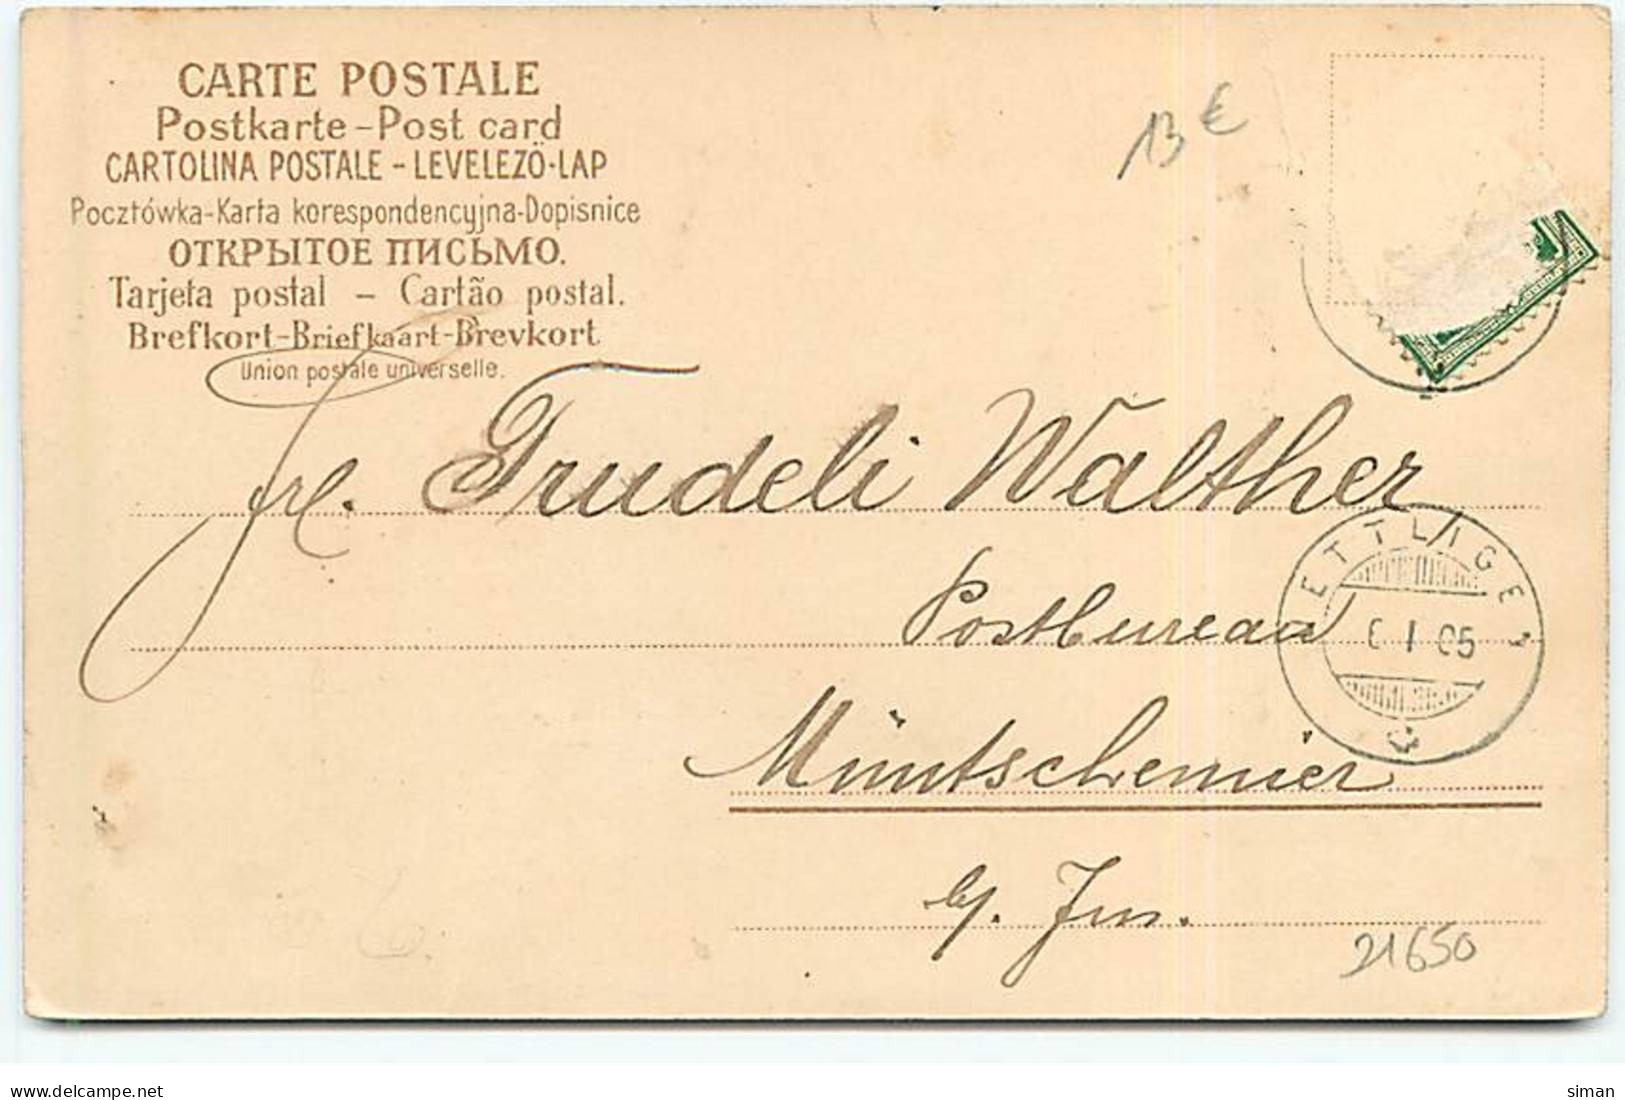 CARTE POSTALE
Postkarte - Post card
CARTOLINA POSTALE - LEVELEZŐ-LAP
Pocztówka-Karta korespondencyjna-Dopisnice
ОТКРЫТОЕ ПИСЬМО.
Tarjeta postal - Cartão postal.
Brefkort-Briefkaart-Brevkort
Union postale universelle.
13 €
Frl. Trudeli Walther
Postbureau
Müntschemier
ETTLIGE
I 05
21650
delcampe.net
siman